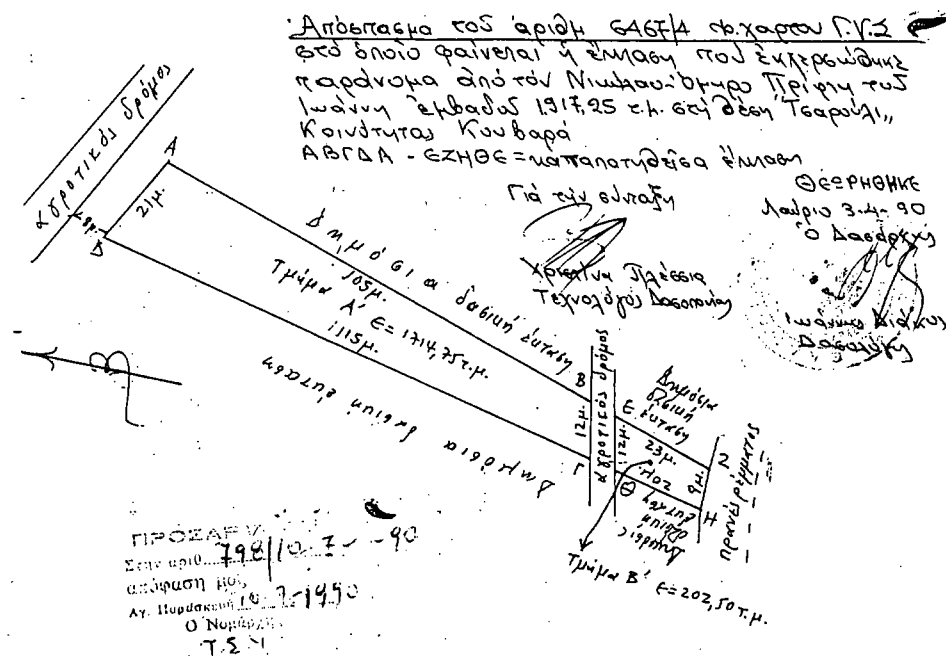 Απόσπασμα τοῦ ἀριθμ 6467/4 φ.χαρτου Γ.Υ.Σ
στὸ ὁποῖο φαίνεται ἡ ἔκταση ποὺ ἐκχερσώθηκε
παράνομα ἀπὸ τὸν Νικόλαο-Ὅμηρο Πρίφτη τοῦ
Ἰωάννη ἐμβαδοῦ 1917,25 τ.μ. στὴ θέση "Τσαρούλι,,
Κοινότητας Κουβαρᾶ
ΑΒΓΔΑ - ΕΖΗΘΕ = καταπατηθεῖσα ἔκταση
Γιὰ τὴν σύνταξη
Χριστίνα Πλέσσια
Τεχνολόγος Δασοπονίας
ΘΕΩΡΗΘΗΚΕ
Λαύριο 3-4-90
Ὁ Δασάρχης
Ἰωάννης
Δασολόγος
ἀγροτικός δρόμος
Α
21μ.
Δ
Δημόσια δασική ἔκταση
105μ.
Τμῆμα Α' Ε=1714,75τ.μ.
115μ.
Δημόσια δασική ἔκταση
Β
12μ.
Γ
ἀγροτικός δρόμος
Δημόσια
δασική
ἔκταση
Ε
12μ.
23μ.
Ζ
9μ.
Θ
Η
Δημόσια
δασική
ἔκταση
πρανές ρέμματος
Τμῆμα Β' Ε=202,50τ.μ.
Στην αριθ. 798/10-7-90
απόφαση μας
Αγ. Παρασκευή 10-7-1990
Ο Νομάρχης
Τ.Σ.Υ